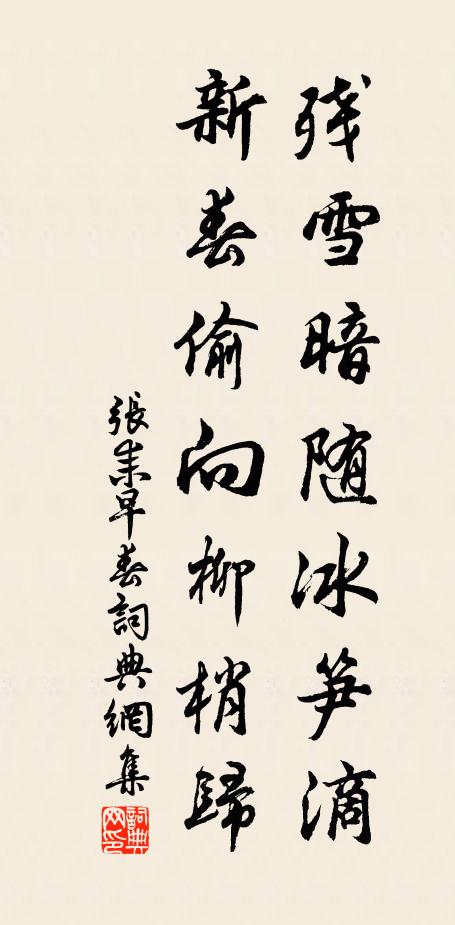 残雪暗随冰笋滴
新春偷向柳梢歸
張耒早春詞典網集
詞典網印